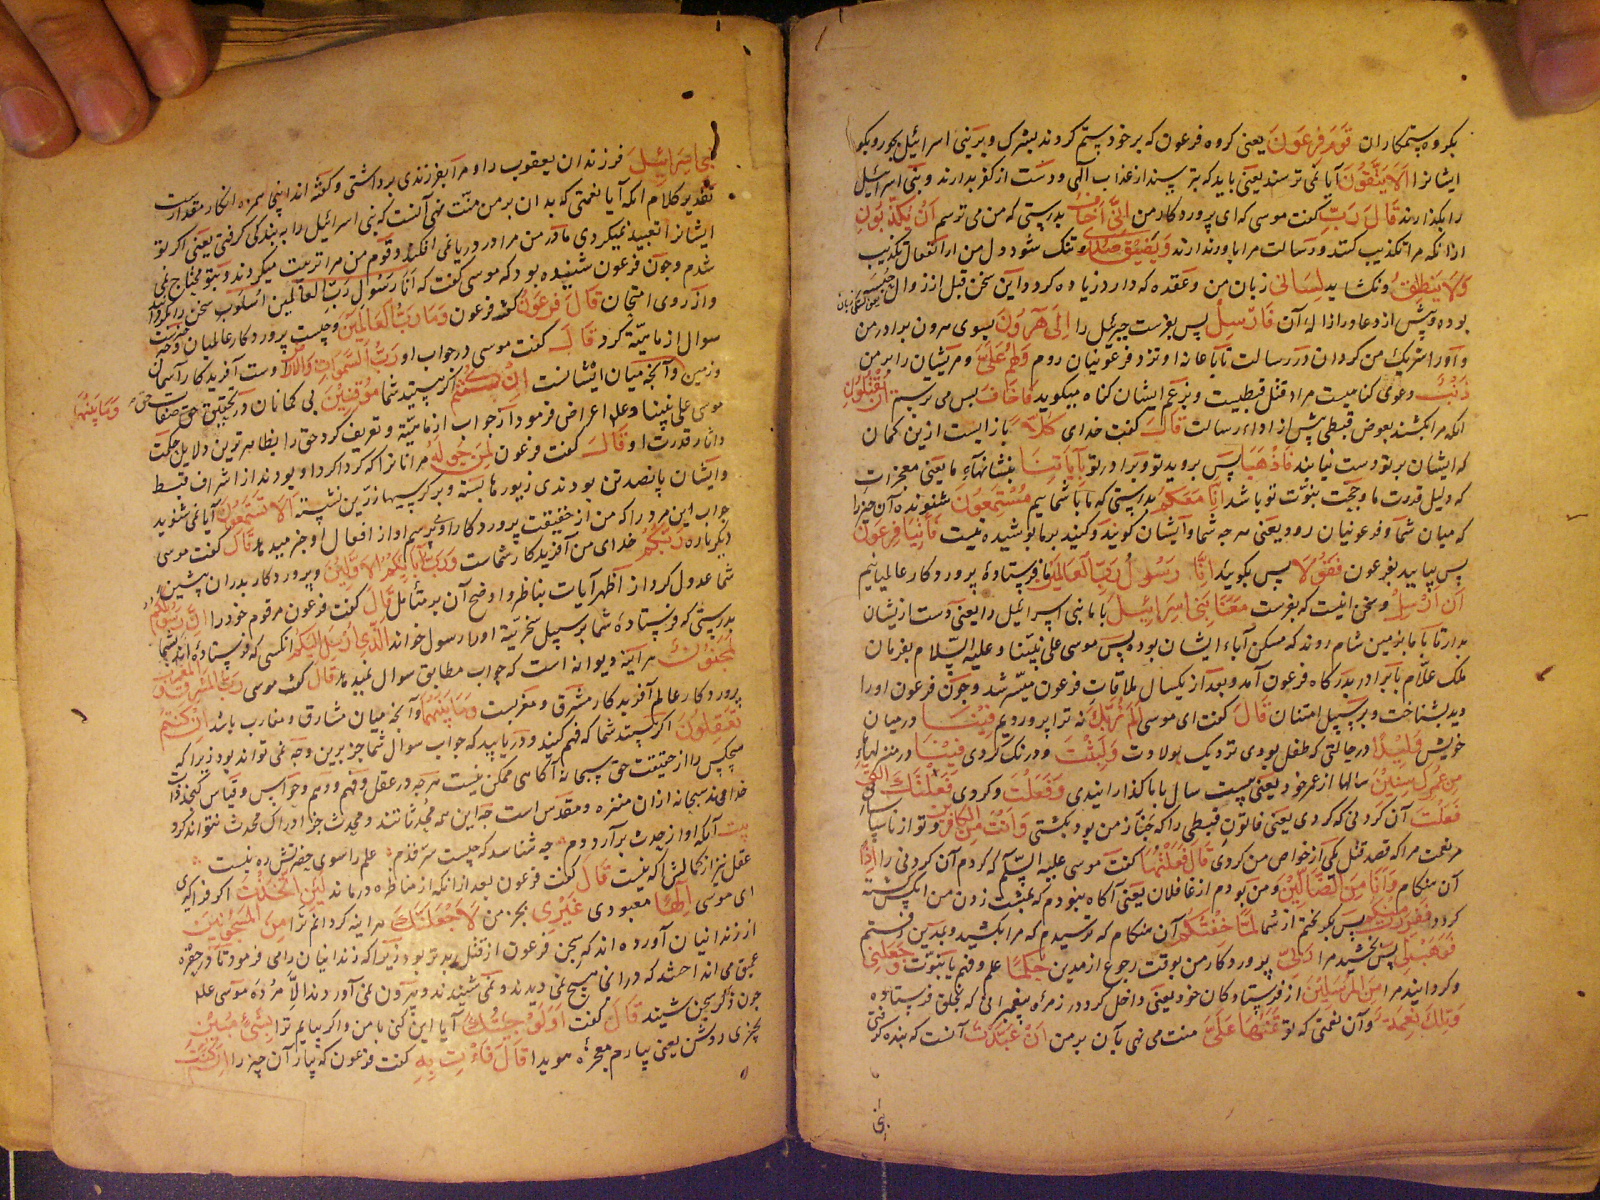 بکروه ستمکاران قَوْمَ فِرْعَوْنَ یعنی کروه فرعون که بر خود ستم کردند بشرک و بر بنی اسرائیل بجور و بکو
ایشانرا اَلَا یَتَّقُونَ آیا نمی ترسند یعنی باید که بترسند از عذاب الهی و دست از کفر بدارند و بنی اسرائیل
را بکذارند قَالَ رَبِّ کفت موسی که ای پروردکار من اِنِّی اَخَافُ بدرستی که من می ترسم اَنْ یُکَذِّبُونِ
ازانکه مرا تکذیب کنند و رسالت مرا باور ندارند وَیَضِیقُ صَدْرِی و تنک شود دل من از انفعال تکذیب
وَلَا یَنْطَلِقُ و نکشاید لِسَانِی زبان من و عقده که دارد زیاده کردد و این سخن قبل از زوال
بوده و پیش از دعا و ازاله آن فَاَرْسِلْ پس بفرست جبرئیل را اِلٰی هٰرُونَ بسوی هرون برادر من
و او را شریک من کردان در رسالت تا باعانه او نزد فرعونیان روم وَلَهُمْ عَلَیَّ و مریشان را بر من
ذَنْبٌ دعوی کناهیست مراد قتل قبطیست و بزعم ایشان کناه میکوید فَاَخَافُ پس می ترسم اَنْ یَقْتُلُونِ
انکه مرا بکشند بعوض قبطی پیش از اداء رسالت قَالَ کفت خدای کَلَّا باز ایست ازین کمان
که ایشان بر تو دست نیابند فَاذْهَبَا پس بروید تو و برادر تو بِآیَاتِنَا بنشانهاء ما یعنی معجزات
که دلیل قدرت ما و حجت نبوّت تو باشد اِنَّا مَعَکُمْ بدرستی که ما با شماییم مُسْتَمِعُونَ شنونده آن چیز را
که میان شما و فرعونیان رود یعنی هر چه شما و ایشان کویند و کنید بر ما پوشیده نیست فَأْتِیَا فِرْعَوْنَ
پس بیایید بفرعون فَقُولَا پس بکویید اِنَّا رَسُولُ رَبِّ الْعَالَمِینَ ما فرستادهٔ پروردکار عالمیانیم
اَنْ اَرْسِلْ و سخن اینست که بفرست مَعَنَا بَنِی اِسْرَائِیلَ با ما بنی اسرائیل را یعنی دست ازیشان
بدار تا با ما بزمین شام روند که مسکن آباء ایشان بوده پس موسی علی نبیّنا و علیه السّلام بفرمان
ملک علّام با برادر بدرکاه فرعون آمد و بعد از یکسال ملاقات فرعون میسّر شد و چون فرعون او را
دید بشناخت و بر سبیل امتنان قَالَ کفت ای موسی اَلَمْ نُرَبِّکَ نه ترا پروردیم فِینَا در میان
خویش وَلِیدًا در حالتی که طفل بودی نزدیک بولادت وَلَبِثْتَ و درنک کردی فِینَا در منزلهاء
مِنْ عُمُرِکَ سِنِینَ سالها از عمر خود یعنی بیست سال با ما کذرانیدی وَفَعَلْتَ و کردی فَعْلَتَکَ الَّتِی
فَعَلْتَ آن کردنی که کردی یعنی فاتون قبطی را که خبّاز من بود بکشتی وَاَنْتَ مِنَ الْکَافِرِینَ و تو از ناسپاسانی
مر نعمت مرا که قصد قتل یکی از خواص من کردی قَالَ فَعَلْتُهَا کفت موسی علیه السّلام که کردم آن کردنی را اِذًا
آن هنکام وَاَنَا مِنَ الضَّالِّینَ و من بودم از غافلان یعنی آکاه نبودم که بمشت زدن من آنکس کشته
کردد فَفَرَرْتُ مِنْکُمْ پس بکریختم از شما لَمَّا خِفْتُکُمْ آن هنکام که ترسیدم که مرا بکشید و بمدین رفتم
فَوَهَبَ لِی پس بخشید مرا رَبِّی پروردکار من بوقت رجوع از مدین حُکْمًا علم و فهم یا نبوّت وَجَعَلَنِی
و کردانید مرا مِنَ الْمُرْسَلِینَ از فرستادکان خود یعنی داخل کرد در زمرهٔ پیغمبرانی که بخلق فرستاده
وَتِلْکَ نِعْمَةٌ و آن نعمتی که تو تَمُنُّهَا عَلَیَّ منت می نهی بآن بر من اَنْ عَبَّدْتَ آنست که بنده کرفتی
بنی
بَنِی اِسْرَائِیلَ فرزندان یعقوب را و مرا بفرزندی برداشتی و کفته اند اینجا همزه انکار مقدّرست
تقدیر کلام انکه آیا نعمتی که بدان بر من منّت نهی آنست که بنی اسرائیل را به بندکی کرفتی یعنی اکر تو
ایشانرا تعبید نمیکردی مادر من مرا در دریا نمی افکند و قوم من مرا تربیت میکردند و بتو محتاج نمی
شدم و چون فرعون شنیده بود که موسی کفت که اَنَا رَسُولُ رَبِّ الْعَالَمِینَ اسلوب سخن را بکردانید
و از روی امتحان قَالَ فِرْعَوْنُ کفت فرعون وَمَا رَبُّ الْعَالَمِینَ و چیست پروردکار عالمیان
سوال از ماهیّت کرد قَالَ کفت موسی در جواب او رَبُّ السَّمٰوَاتِ وَالْاَرْضِ اوست آفریدکار آسمان
و زمین و آنچه میان ایشانست اِنْ کُنْتُمْ اکر هستید شما مُوقِنِینَ بی کمانان در تحقیق وَمَا بَیْنَهُمَا
موسی علی نبیّنا و علیه اعراض فرمود از جواب از ماهیّت و تعریف کرد حق را بظاهرترین دلایل حکمت
و آثار قدرت او قَالَ کفت فرعون لِمَنْ حَوْلَهُ مر انانرا که کرداکرد او بودند از اشراف قبط
و ایشان پانصد تن بودند زیورها بسته و بر کرسیهاء زرّین نشسته اَلَا تَسْتَمِعُونَ آیا نمی شنوید
جواب این مرد را که من از حقیقت پروردکار او می پرسم او از افعال او خبر میدهد قَالَ کفت موسی
دیکرباره رَبُّکُمْ خدای من آفریدکار شماست وَرَبُّ آبَائِکُمُ الْاَوَّلِینَ و پروردکار پدران پیشین
شما عدول کرد از اظهر آیات بناظر و اوضح آن بر متأمّل قَالَ کفت فرعون مر قوم خود را اِنَّ رَسُولَکُمُ
بدرستی که فرستادهٔ شما بر سبیل سخریّه او را رسول خواند الَّذِی اُرْسِلَ اِلَیْکُمْ انکسی که فرستاده اند بشما
لَمَجْنُونٌ هر آینه دیوانه است که جواب مطابق سوال نمیدهد قَالَ کفت موسی رَبُّ الْمَشْرِقِ وَالْمَغْرِبِ
پروردکار عالم آفریدکار مشرق و مغربست وَمَا بَیْنَهُمَا و آنچه میان مشارق و مغارب باشد اِنْ کُنْتُمْ
تَعْقِلُونَ اکر هستید شما که فهم کنید و دریابید که جواب سوال شما جز برین وجه نمی تواند بود زیرا که
هیچکس را از حقیقت حق سبحانه آکاهی ممکن نیست هر چه در عقل و فهم و وهم و حواس و قیاس کنجد ذات
خداوند سبحانه ازان منزه و مقدّس است چه این همه مُحدثاتند و محدث جز ادراک محدث نتواند کرد
بیت آنکه او از حدث برآرد دم چه شناسد که چیست سرّ قدم علم را سوی حضرتش ره نیست
عقل نیز از کمالش آکه نیست قَالَ کفت فرعون بعد ازانکه از مناظره درماند لَئِنِ اتَّخَذْتَ اکر فرا کیری
ای موسی اِلٰهًا معبودی غَیْرِی بجز من لَاَجْعَلَنَّکَ هر آینه کردانم ترا مِنَ الْمَسْجُونِینَ
از زندانیان آورده اند که سجن فرعون از قتل بدتر بود زیرا که زندانیان را می فرمود تا در حفره
عمیق می انداختند که در انجا هیچ نمی دیدند و نمی شنیدند و بیرون نمی آوردند الّا مرده موسی علیه
چون ذکر سجن شنید قَالَ کفت اَوَلَوْ جِئْتُکَ آیا این کنی با من و اکر بیایم ترا بِشَیْءٍ مُبِینٍ
بچیزی روشن یعنی بیارم معجزهٔ هویدا قَالَ فَأْتِ بِهِ کفت فرعون که بیار آن چیز را اِنْ کُنْتَ